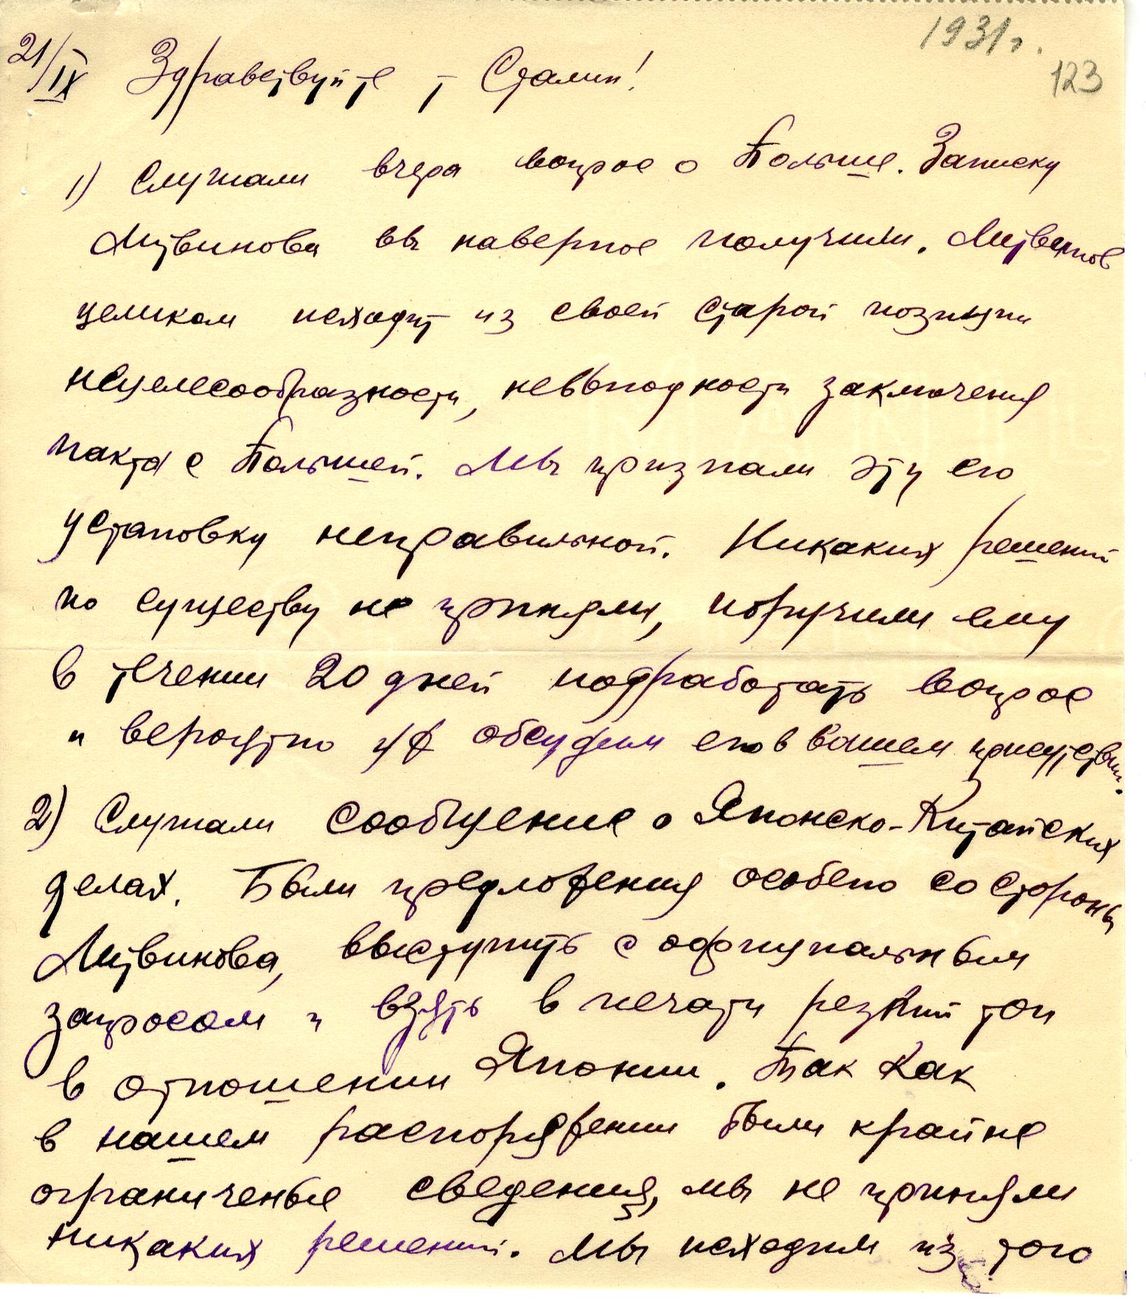 1931 г.
123
21/IX Здравствуйте т Сталин!
1) Слушали вчера вопрос о Польше. Записку
Литвинова вы наверное получили. Литвинов
целиком исходит из своей старой позиции
нецелесообразности, невыгодности заключения
пакта с Польшей. Мы признали эту его
установку неправильной. Никаких решений
по существу не приняли, поручили ему
в течении 20 дней подработать вопрос
и вероятно уж обсудим его в вашем присутствии.
2) Слушали сообщение о Японско-Китайских
делах. Были предложения особено со стороны
Литвинова, выступить с официальным
запросом и взять в печати резкий тон
в отношении Японии. Так как
в нашем распоряжении были крайне
ограниченые сведения, мы не приняли
никаких решений. Мы исходим из того